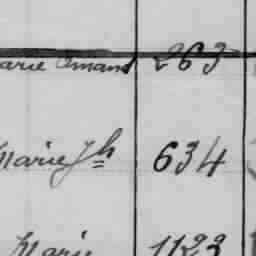 arie Amand 263
Marie Jh 634
Marie 1123